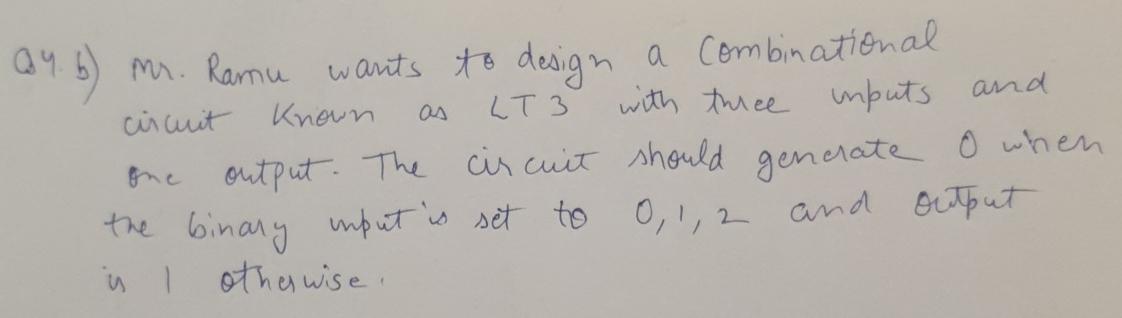 Q4. b) Mr. Ramu wants to design a Combinational
circuit Known as LT3 with three inputs and
one output. The circuit should generate 0 when
the binary input is set to 0, 1, 2 and output
is 1 otherwise.